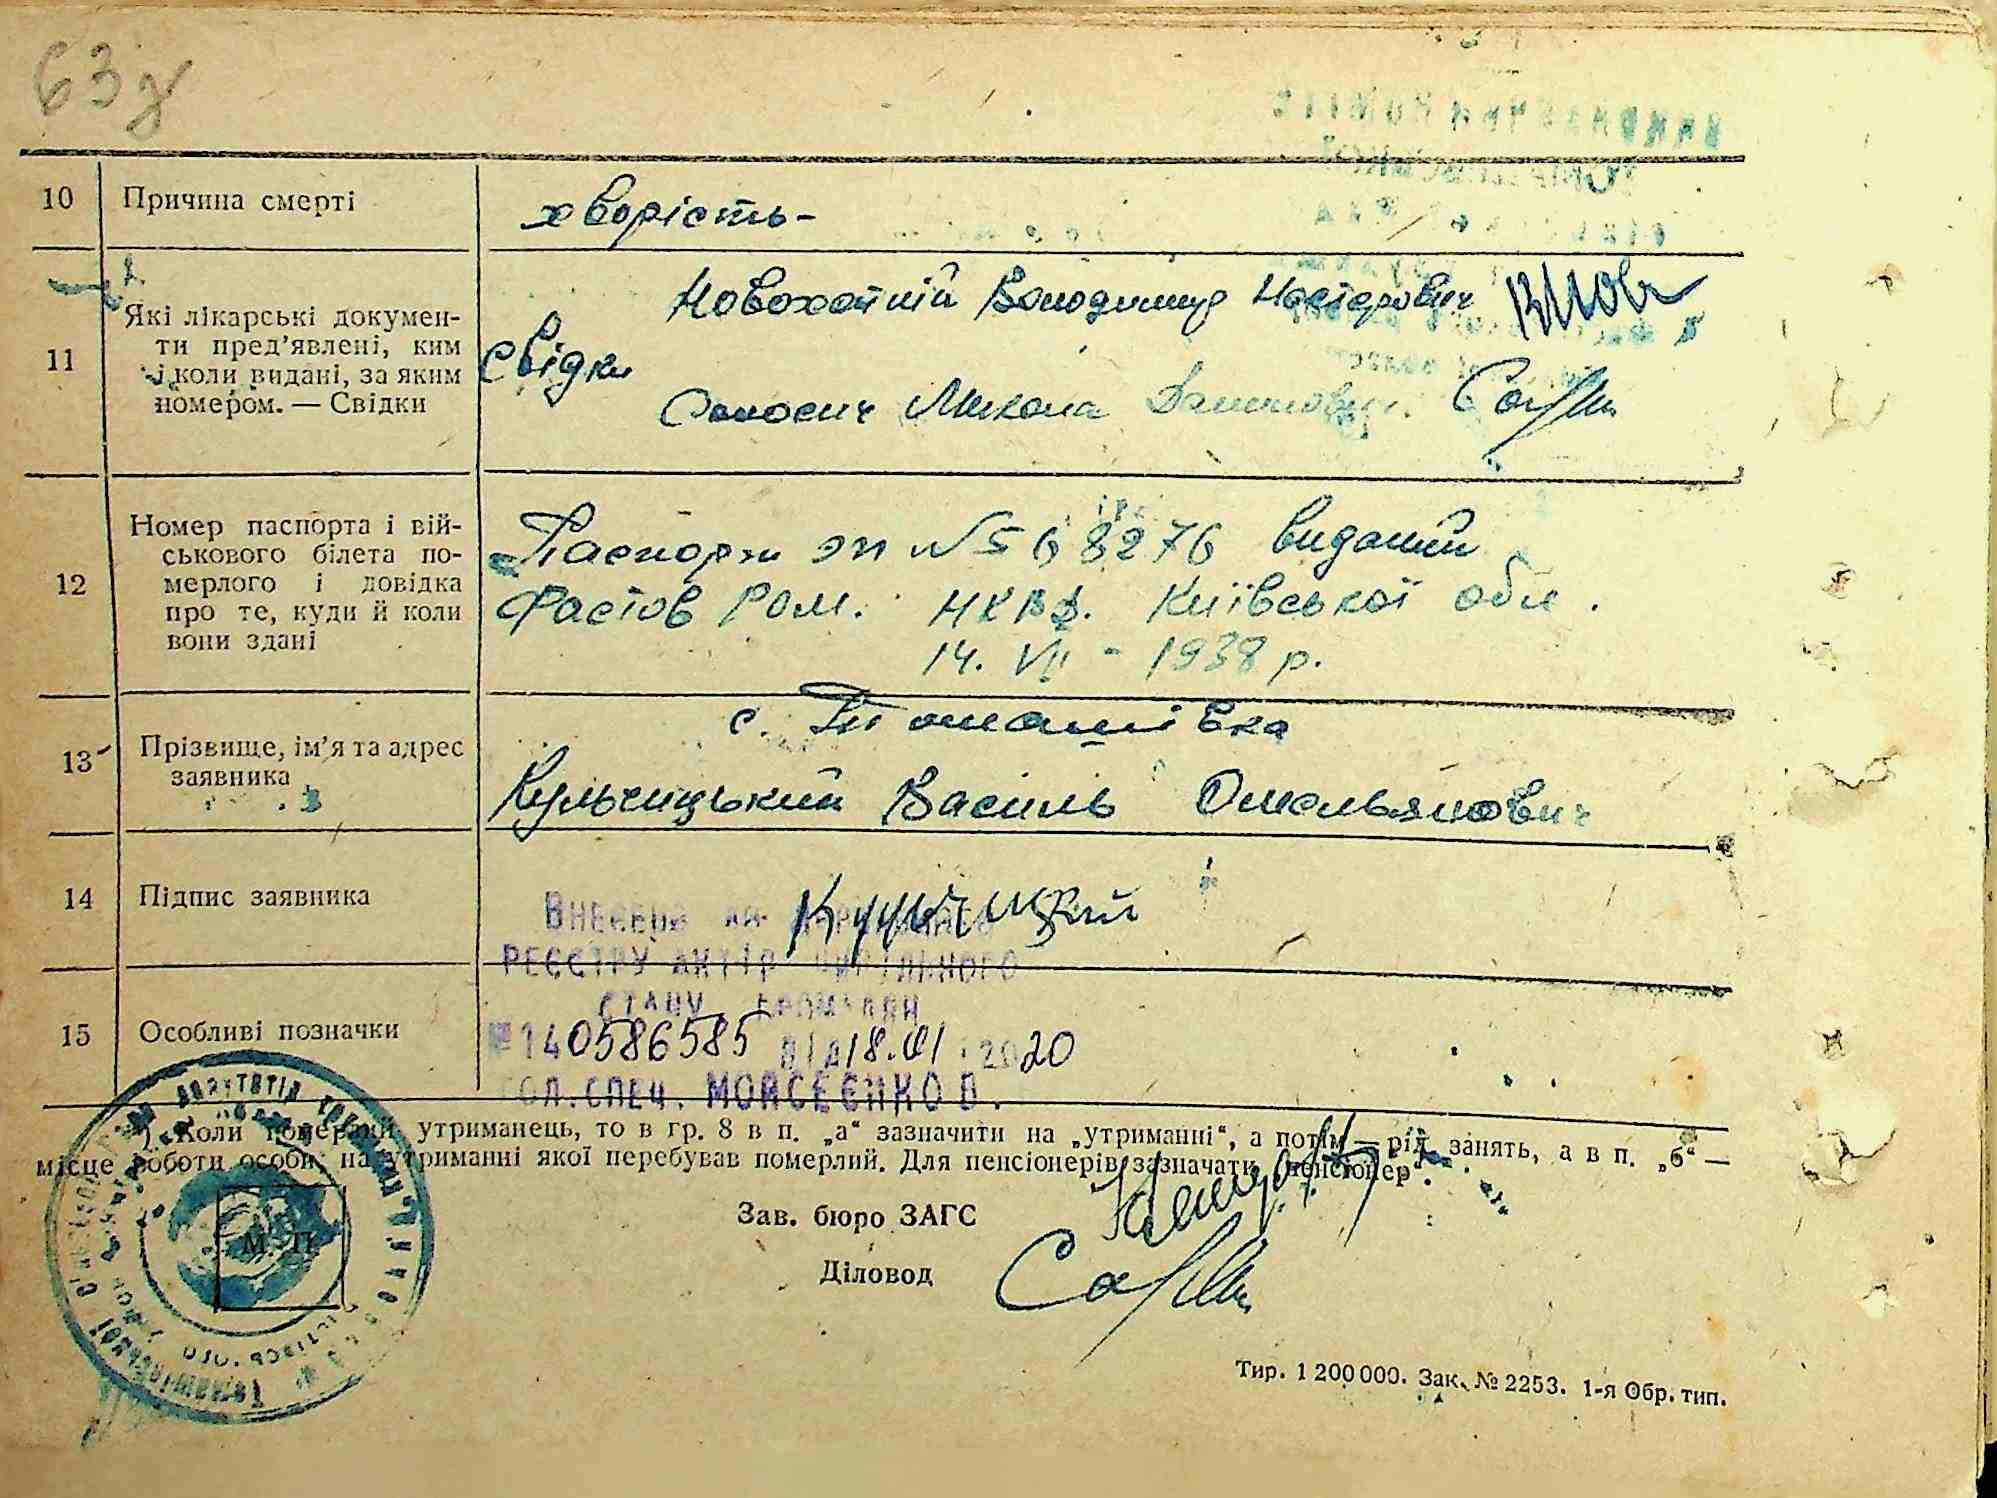 63
10 Причина смерті хворість-
11 Які лікарські докумен-
ти пред’явлені, ким
і коли видані, за яким
номером. — Свідки
Свідки
Новохатній Володимир Нестерович
Микола
12 Номер паспорта і вій-
ськового білета по-
мерлого і довідка
про те, куди й коли
вони здані
Паспорт эп № 568276 виданий
Фастов РОМ. НКВД. Київської обл.
14. VII - 1938 р.
13 Прізвище, ім’я та адрес
заявника
с. Томашівка
Кульчицький Василь Омельянович
14 Підпис заявника
15 Особливі позначки
Внесено до
реєстру актів цивільного
стану громадян
№ 140586585 від 18.01.2020
гол. спец. Мойсеєнко О.
*) Коли померлий утриманець, то в гр. 8 в п. „а“ зазначити на „утриманні“, а потім — рід занять, а в п. „б“ —
місце роботи особи, на утриманні якої перебував померлий. Для пенсіонерів зазначати „пенсіонер“.
Зав. бюро ЗАГС
Діловод
М. П.
Тир. 1 200 000. Зак. № 2253. 1-я Обр. тип.